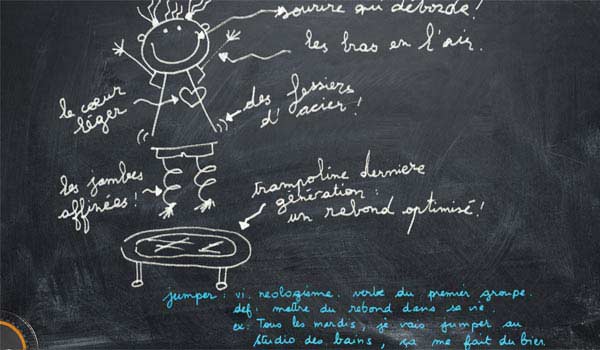 sourire qui déborde!
les bras en l'air.
le cœur
léger
des fessiers
d'acier!
les jambes
affinées!
trampoline derniere
génération:
un rebond optimisé!
jumper: vi. neologisme. verbe du premier groupe.
def. mettre du rebond dans sa vie.
ex: Tous les mardis, je vais jumper au
studio des bains, ça me fait du bien.